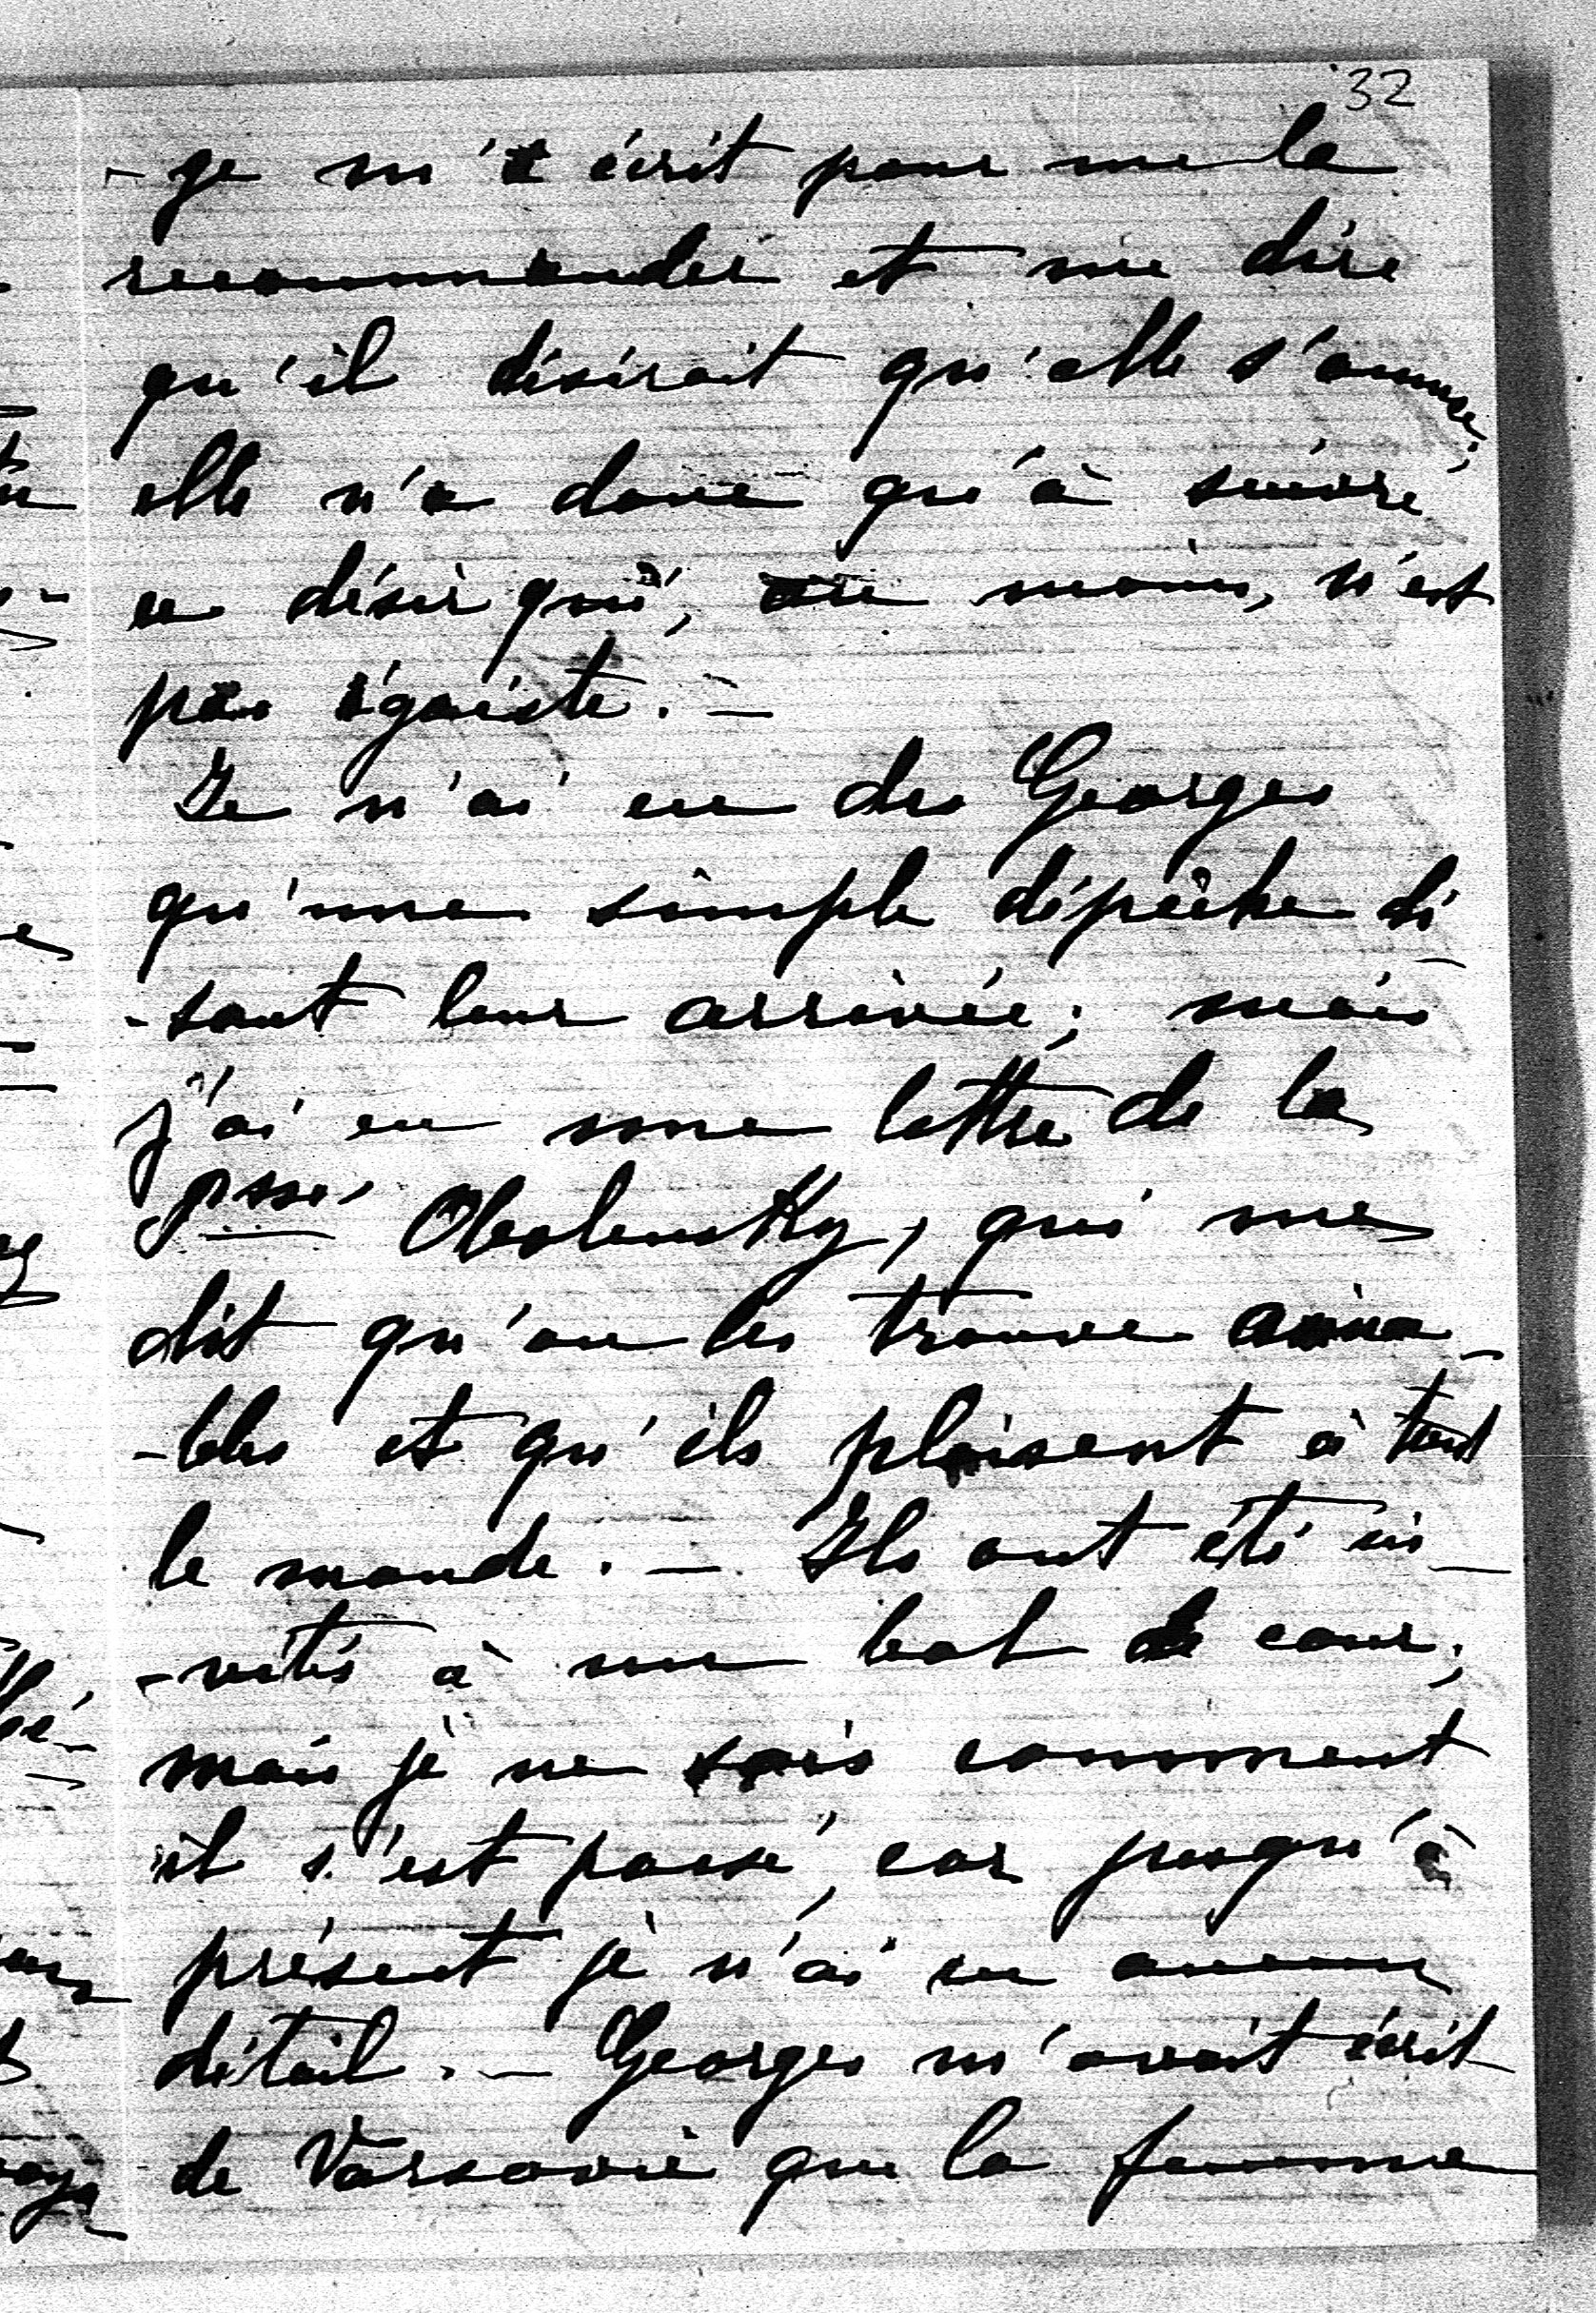 32
-ge m'a écrit pour me la
recommander et me dire
qu'il désirait qu'elle s'amuse;
elle n'a donc qu'à suivre
ce désir qui, au moins, n'est
pas égoïste. —
Je n'ai eu de Georges
qu'une simple dépêche di
-sant leur arrivée; mais
j'ai eu une lettre de la
Psse Obolensky, qui me
dit qu'on les trouve aima-
-bles et qu'ils plaisent à tout
le monde. — Ils ont été in-
-vités à un bal de cour;
mais je ne sais comment
il s'est passé, car jusqu'à
présent je n'ai eu aucun
détail. — Georges m'avait écrit
de Varsovie que la femme